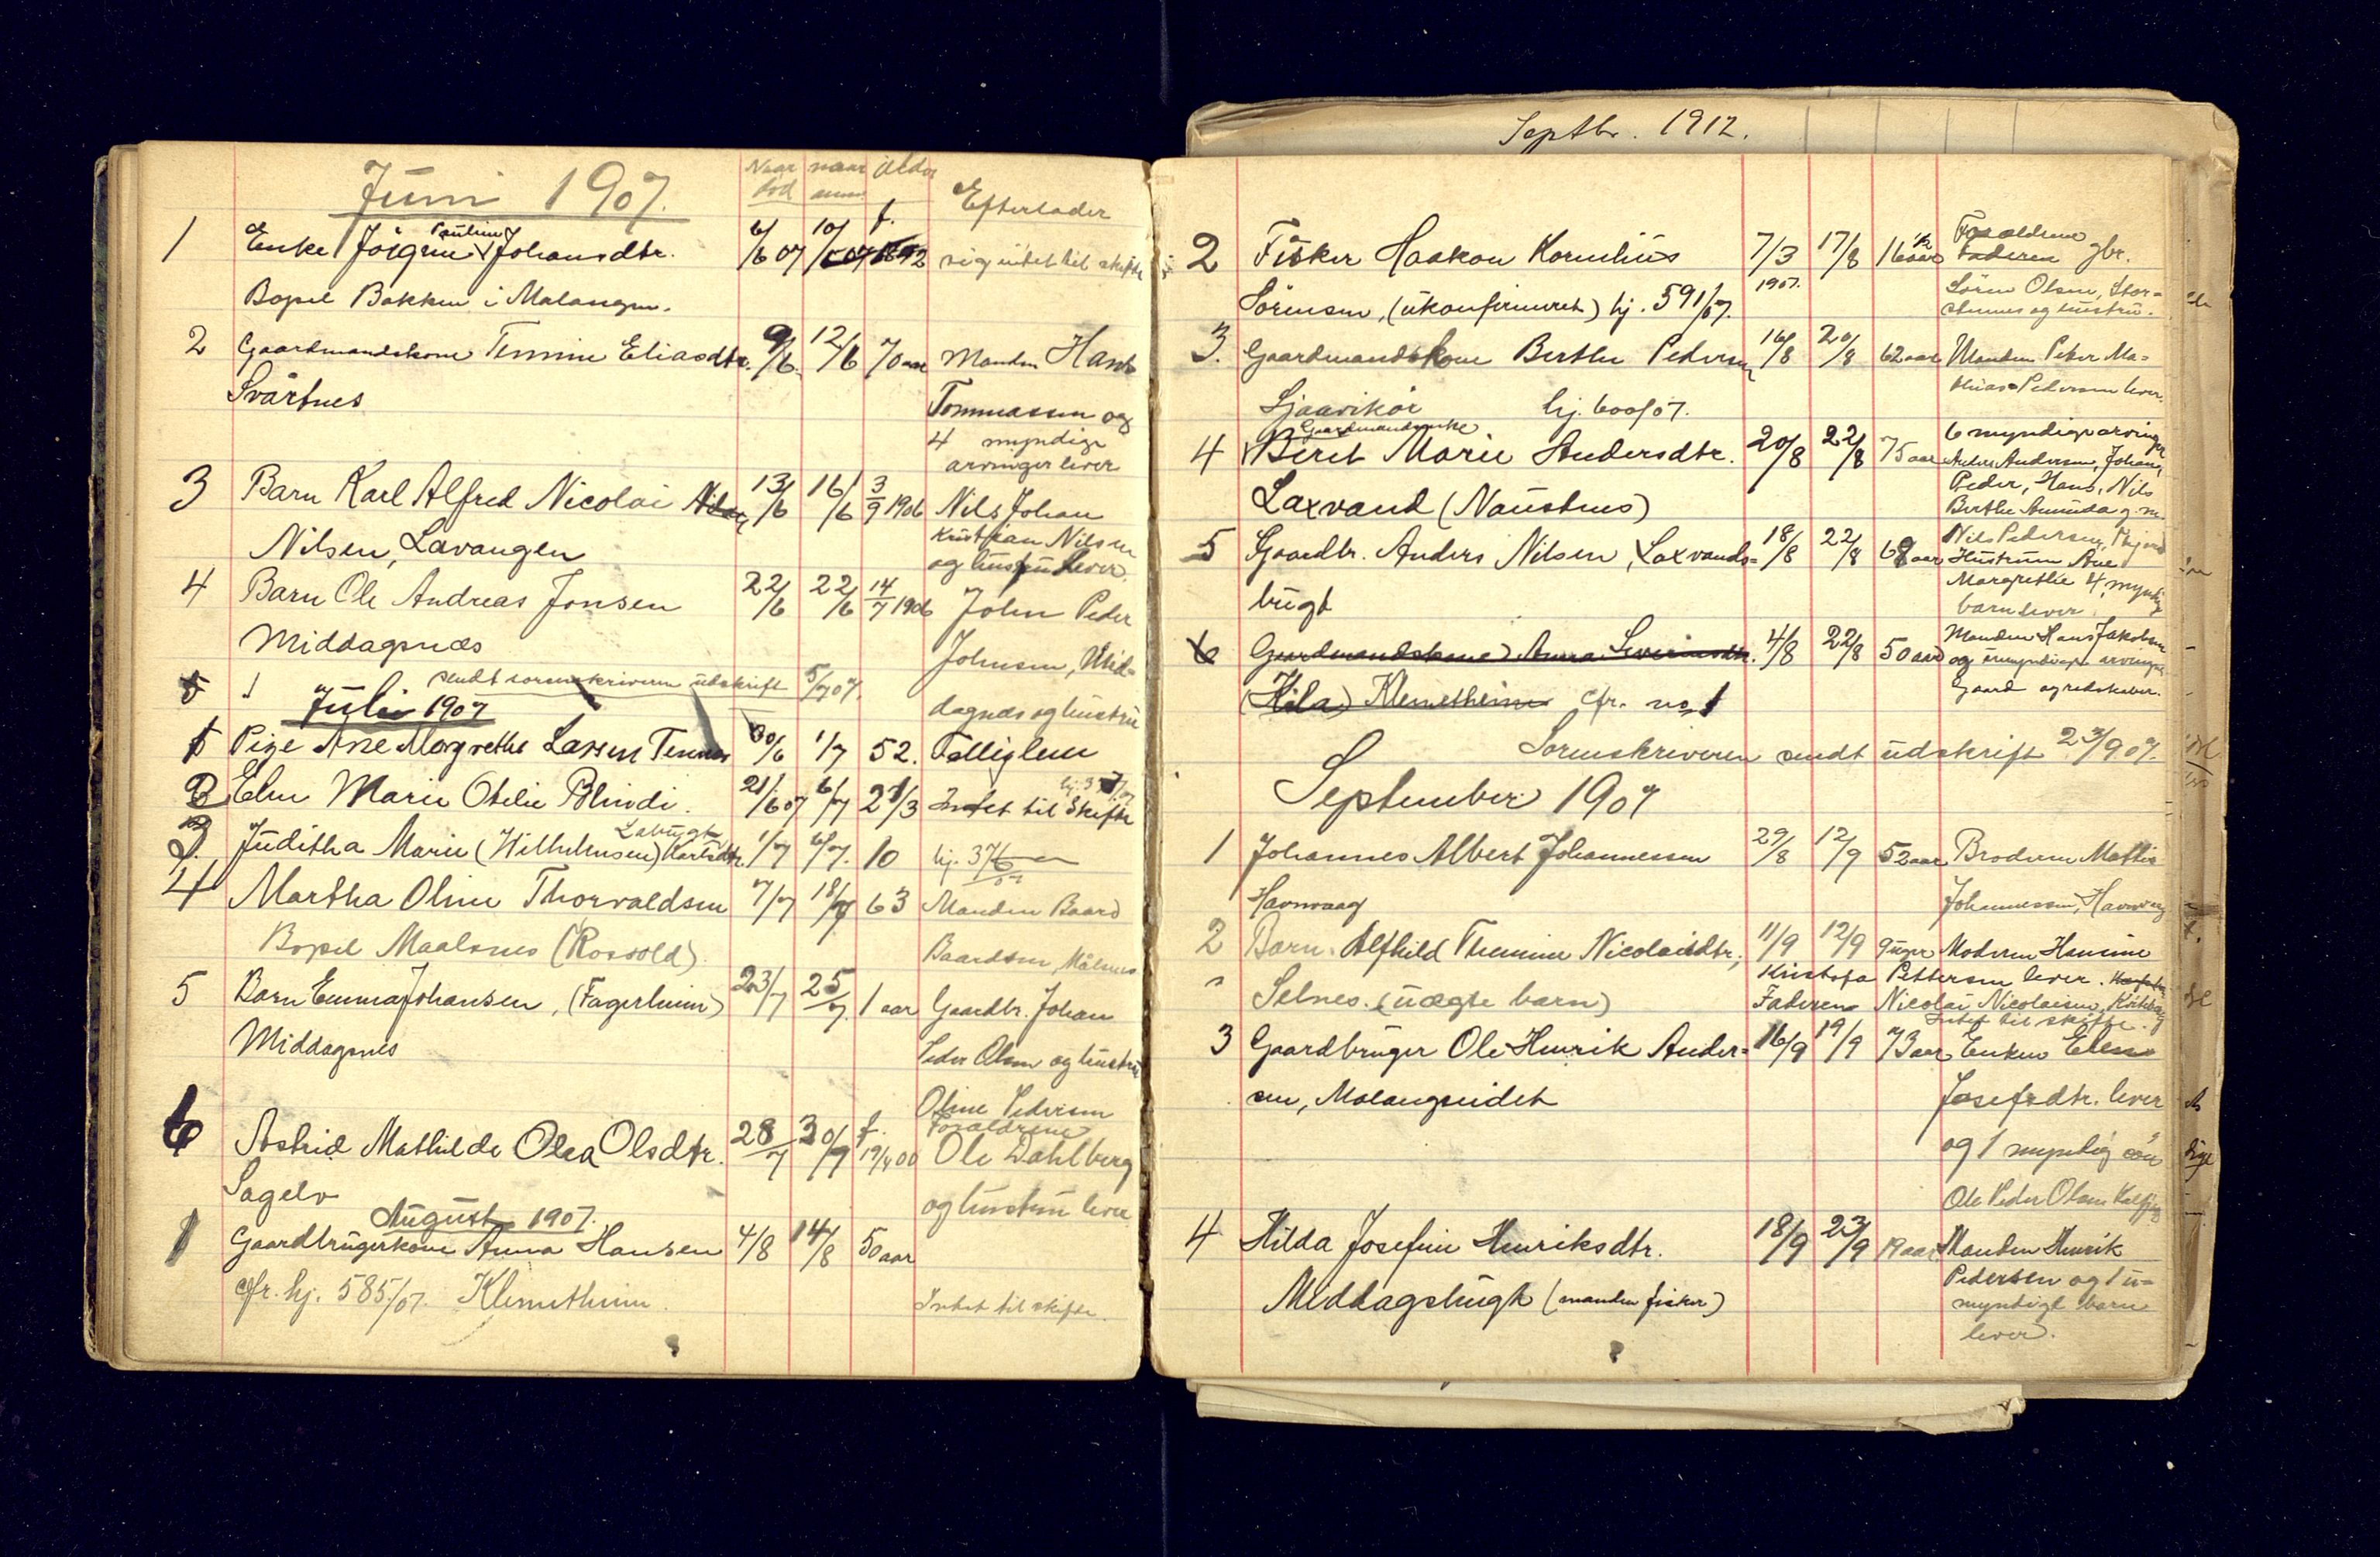 Juni 1907.
Naar død
naar anm.
Alder
Efterlader
1 Enke Jörgine Pauline Johansdtr. 6/6 07 10/6 07 f. 1892 sig intet til skifte
Bopel Bakken i Malangen.
2 Gaardmandskone Temine Eliasdtr. 9/6. 12/6 70 aar Manden Hans
Svartnes Tommassen og
4 myndige
arvinger lever
3 Barn Karl Alfred Nicolai 13/6 16/6 3/9 1906 Nils Johan
Nilsen, Lavangen Kristian Nilsen
og hustru lever.
4 Barn Ole Andreas Jonsen 22/6 22/6 14/7 1906 John Peder
Middagsnæs Johnsen, Mid-
5 sendt sorenskriveren udskrift 5/7 07.
dagnæs og hustru
Juli 1907
1 Pige Ane Margrethe Larsen Tennes 30/6 1/7 52. Fattiglem
2 Elen Marie Otelie Blindi. 21/6 07 6/7 2 1/3 Intet til Skifte
3. Juditha Marie (Wilhelmsen) Karlsdtr. 1/7 6/7. 10 hj. 376/07
4 Martha Oline Thorvaldsen 7/7 18/7 63 Manden Baard
Bopel Maalsnes (Rosvold). Baardsen, Målsnes
5 Barn Emma Johansen, (Fagerheim) 23/7 25/7. 1 aar Gaardbr. Johan
Middagsnes Peder Olsen og hustru
Oline Pedersen
Forældrene
6 Astrid Mathilde Olea Olsdtr. 28/7 30/7 f. 19/4 00 Ole Dahlberg
Sagelv og hustru lever
August 1907.
1 Gaardbrugerkone Anna Hansen 4/8 14/8 50 aar
cfr. hj. 585/07. Klemetheim. Intet til skifte.
Septbr. 1912.
2 Fisker Haakon Kornelius 7/3 1907. 17/8 16 1/2 aar Forældrene
Faderen gbr.
Sörensen, (ukonfirmeret) hj. 591/07. Sören Olsen, Stor-
stennes og hustru.
3. Gaardmandskone Berthe Pedersen 16/8 20/8 62 aar Manden Peter Ma-
thias Pedersen lever.
Sjaavikør hj. 600/07.
Gaardmandsenke
4 Beret Marie Andersdtr. 20/8 22/8 75 aar 6 myndige arvinger
Anders Andersen, Johan,
Laxvand (Naustnes) Peder, Hans, Nils
Berthe Amunda g.m.
Nils Pedersen,
5 Gaardbr. Anders Nilsen, Laxvands- 18/8 22/8 68 aar Hustruen Ane
bugt Margrethe 4 myndige
barn lever.
6 Gaardmandskone Anna Severinsdtr. 4/8 22/8 50 aar Manden Hans Jakobsen
og umyndige arvinger
(Hila) Klemetheim cfr. no 1 Gaard og redskaber.
Sorenskriveren sendt udskrift 23/9 07.
September 1907
1 Johannes Albert Johannessen 29/8 12/9 52 aar Broderen Mathis
Havnvaag Johannessen, Havnvaag
2 Barn Alfhild Themine Nicolaisdtr. 11/9 12/9 9 uger Moderen Hansine
Kristofa Pettersen lever.
Selnes. (uægte barn) Faderen Nicolai Nicolaisen,
Intet til skifte.
3 Gaardbruger Ole Henrik Ander- 16/9 19/9 73 aar Enken Elen
sen, Malangseidet Josefsdtr. lever
og 1 myndig søn
Ole Peder Olsen
4 Hilda Josefine Henriksdtr. 18/9 23/9 19 aar Manden Henrik
Middagsbugt (manden fisker) Pedersen og 1 u-
myndigt barn
lever.